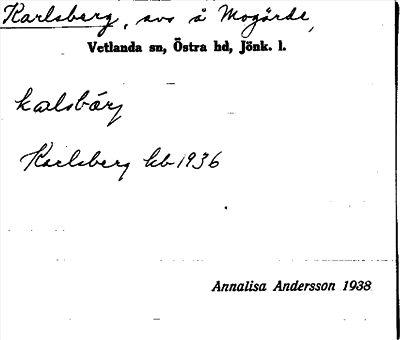 Karlsberg, avs å Mogärde,
Vetlanda sn, Östra hd, Jönk. l.
kalsbärj
Karlsberg kb 1936
Annalisa Andersson 1938